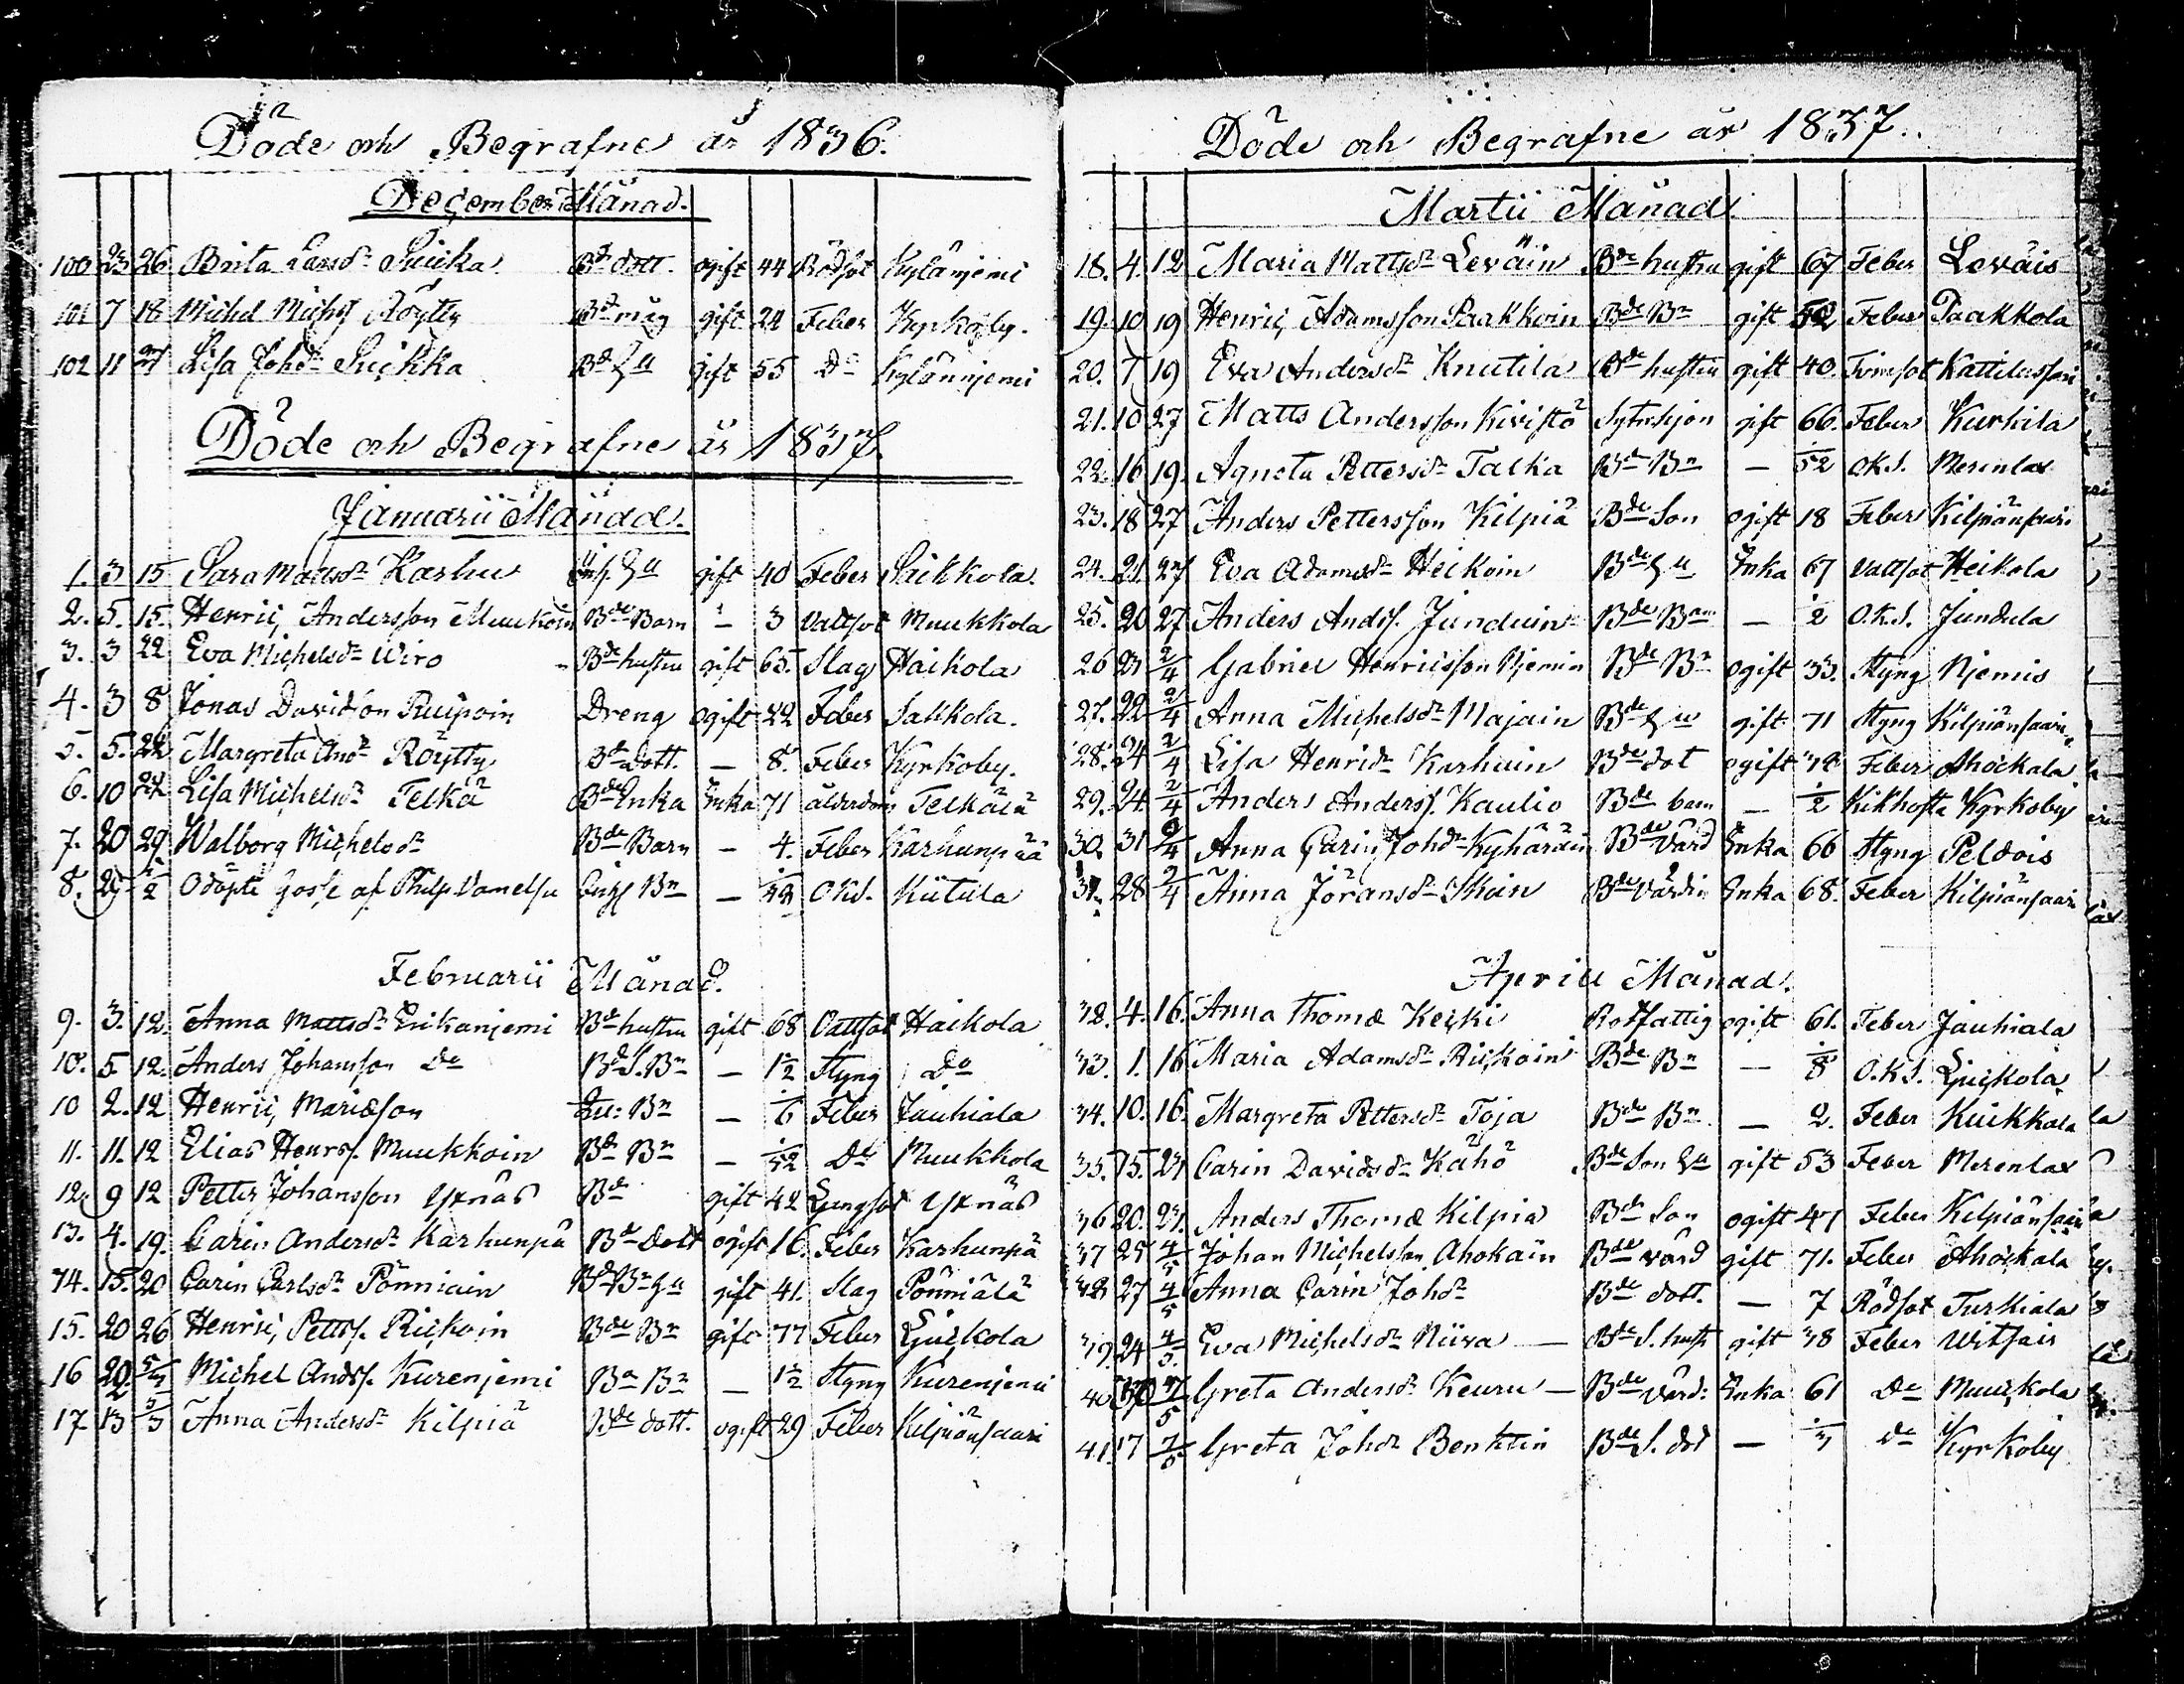 Döde och Begrafne år 1836.
December Månad.
100 23 26 Brita Larsdr Suikka Bde dott. ogift 44 Rödsot Kylänjemi
101 7 18 Michel Michelss Röytty Bde måg gift 24 Feber Kyrkoby.
102 11 27 Lisa Johdr Suikka gift 55 Do Kylänniemi
Döde och Begrafne år 1837.
Januarii Månad.
1. 3 15 Sara Mattsdr Karhu gift 40 Feber Saikkola.
2. 5. 15. Henric Andersson Muukoin Bde Barn - 3 Vattsot Muukkola
3. 3 22 Eva Michelsdr Wiro Bde hustru gift 65. Slag Haikola
4. 3 8 Jonas Davidson Ruipoin Dreng ogift 22 Feber Sakkola.
5. 5. 22 Margreta Andr Röytty Bde dott. — 8. Feber Kyrkoby.
6. 10 22 Lisa Michelsdr Telkä Bde Enka Enka 71 ålderdom Telkälä
7. 20 29 Walborg Michelsdr Bde Barn — 4. Feber Karhunpää
8. Odöpte Gosse af Philp — OKS. Kiitula
Februarii Månad.
9. 3. 12. Anna Mattsdr Erikanjemi Bde hustru gift 68 Vattsot Haikola
10. 5 12. Anders Johansson Do Bde S. Bn — 1/2 Styng Do
10 2. 12 Henric Mariæson Bn — 6 Feber Jauhiala
11. 11. 12 Elias Henrs. Muukkoin Bde Bn — 52 Do Muukkola
12. 9 12 Petter Johansson Yxnäs Bde gift 42 Lungsot Yxnäs
13. 4. 19. Carin Andersdr Karhunpä Bde Dott ogift 16. Feber Karhunpä
14. 15. 20 Carin Carlsdr Pönniäin gift 41. Slag Pönniälä
15. 20 26 Henric Petts. Riikoin Bde Bn gift 77 Feber Liukola
16 20 5/3 Michel Ands. Kurenjemi Bde Bn — 1/2 Styng Kurenjemi
17. 13 5/3 Anna Andersdr Kilpiä Bde dott. ogift 29 Feber Kilpiänsaari
Döde och Begrafne år 1837.
Martii Månad
18. 4. 12 Maria Mattsdr Leväin Bde hustru gift 67 Feber Leväis
19. 10 19 Henric Adamsson Paakkoin Bde Bn gift 52 Feber Paakkola
20. 7 19 Eva Andersdr Knutila Bde hustru gift 40. Kattilassari
21. 10 27 Matts Andersson Kivistö Sytnikjon gift 66. Feber Kurkila
22. 16 19. Agneta Pettersdr Talka Bde Bn — 52 OKS. Merenlax
23. 18 27 Anders Pettersson Kilpiä Bde Son ogift 18 Feber Kilpiänsaari
24. 21. 27 Eva Adamsdr Heikoin Enka 67 Vattsot Heikola
25. 20 27 Anders Ands. Junduin Bde Barn — 2 O.K.S. Jundula
26 23 2/4 Gabriel Henricsson Njemin Bde Bn ogift 33. Styng Njemis
27. 22 2/4 Anna Michelsdr Majain gift 71 Styng Kilpiänsaari
28. 24 2/4 Lisa Henrsdr Karhuin Bde dot ogift 78 Feber Ahokala
29. 24. 2/4 Anders Anderss. Kaulio Bde barn — 2 Kikhosta Kyrkoby
30. 31 9/4 Anna Carin Johdr Kyhäräin Bde Värd Enka 66 Styng Peldois
31. 28 2/4 Anna Jöransdr Skuin Bde Värdin Enka 68. Feber Kilpiänsaari
Aprill Månad.
32. 4. 16. Anna Thomæ Keiki Rotfattig ogift 61. Feber Jauhiala
33. 1. 16 Maria Adamsdr Riikoin Bde Bn — 8 O.K.S. Liukola
34. 10. 16. Margreta Pettersdr Toja Bde Bn — 2. Feber Kiikkala
35. 15. 23 Carin Davidsdr Kähö gift 53 Feber Merenlax
36 20. 23. Anders Thomæ Kilpiä Bde Son ogift 47 Feber Kilpiänsaari
37 25 4/5 Johan Michelsson Ahokain Bde värd gift 71. Feber Ahokala
38 27 4/5 Anna Carin Johdr Bde dott. — 7 Rödsot Turkiala
39. 24 4/5. Eva Michelsdr Niiva — Bde S. hust gift 38 Feber Witsais
40. Greta Andersdr Keuru — Bde Värd: Enka 61 Do Muukola
41. 17 7/5 Greta Johdr Benktin Bde S. dot — 3 Do Kyrkoby